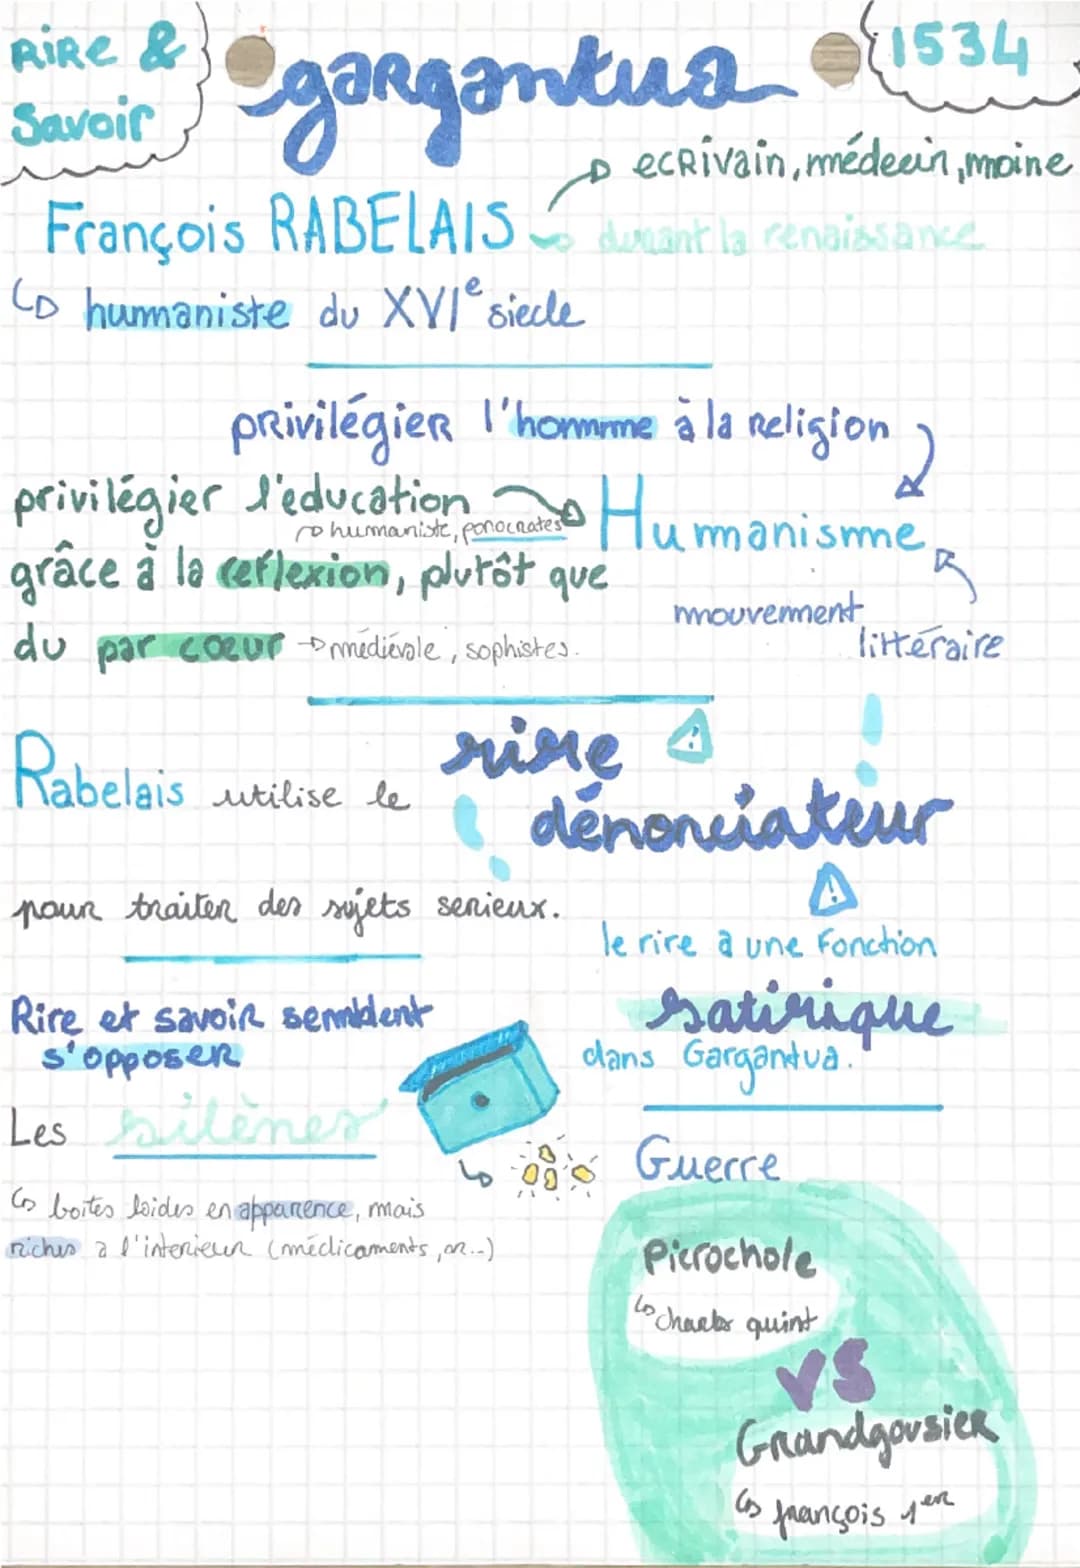 Rire &
Savoir
gargantua
1534
ecrivain, médecin, moine
François RABELAIS
durant la renaissance
humaniste du XVIe siecle
privilégier l'homme à la religion
privilégier l'education
humaniste, ponocrates
Humanisme
grâce à la reflexion, plutôt que
mouvement
littéraire
du par cœur
médiévale, sophistes.
Rabelais utilise le
rire
dénonciateur
pour traiter des sujets serieux.
le rire a une Fonction
satirique
dans Gargantua.
Rire et savoir semblent
s'opposer
Les silènes
boites laides en apparence, mais
riches a l'interieur (médicaments, or...)
Guerre
Picrochole
Charles quint
VS
Grandgousier
françois 1er